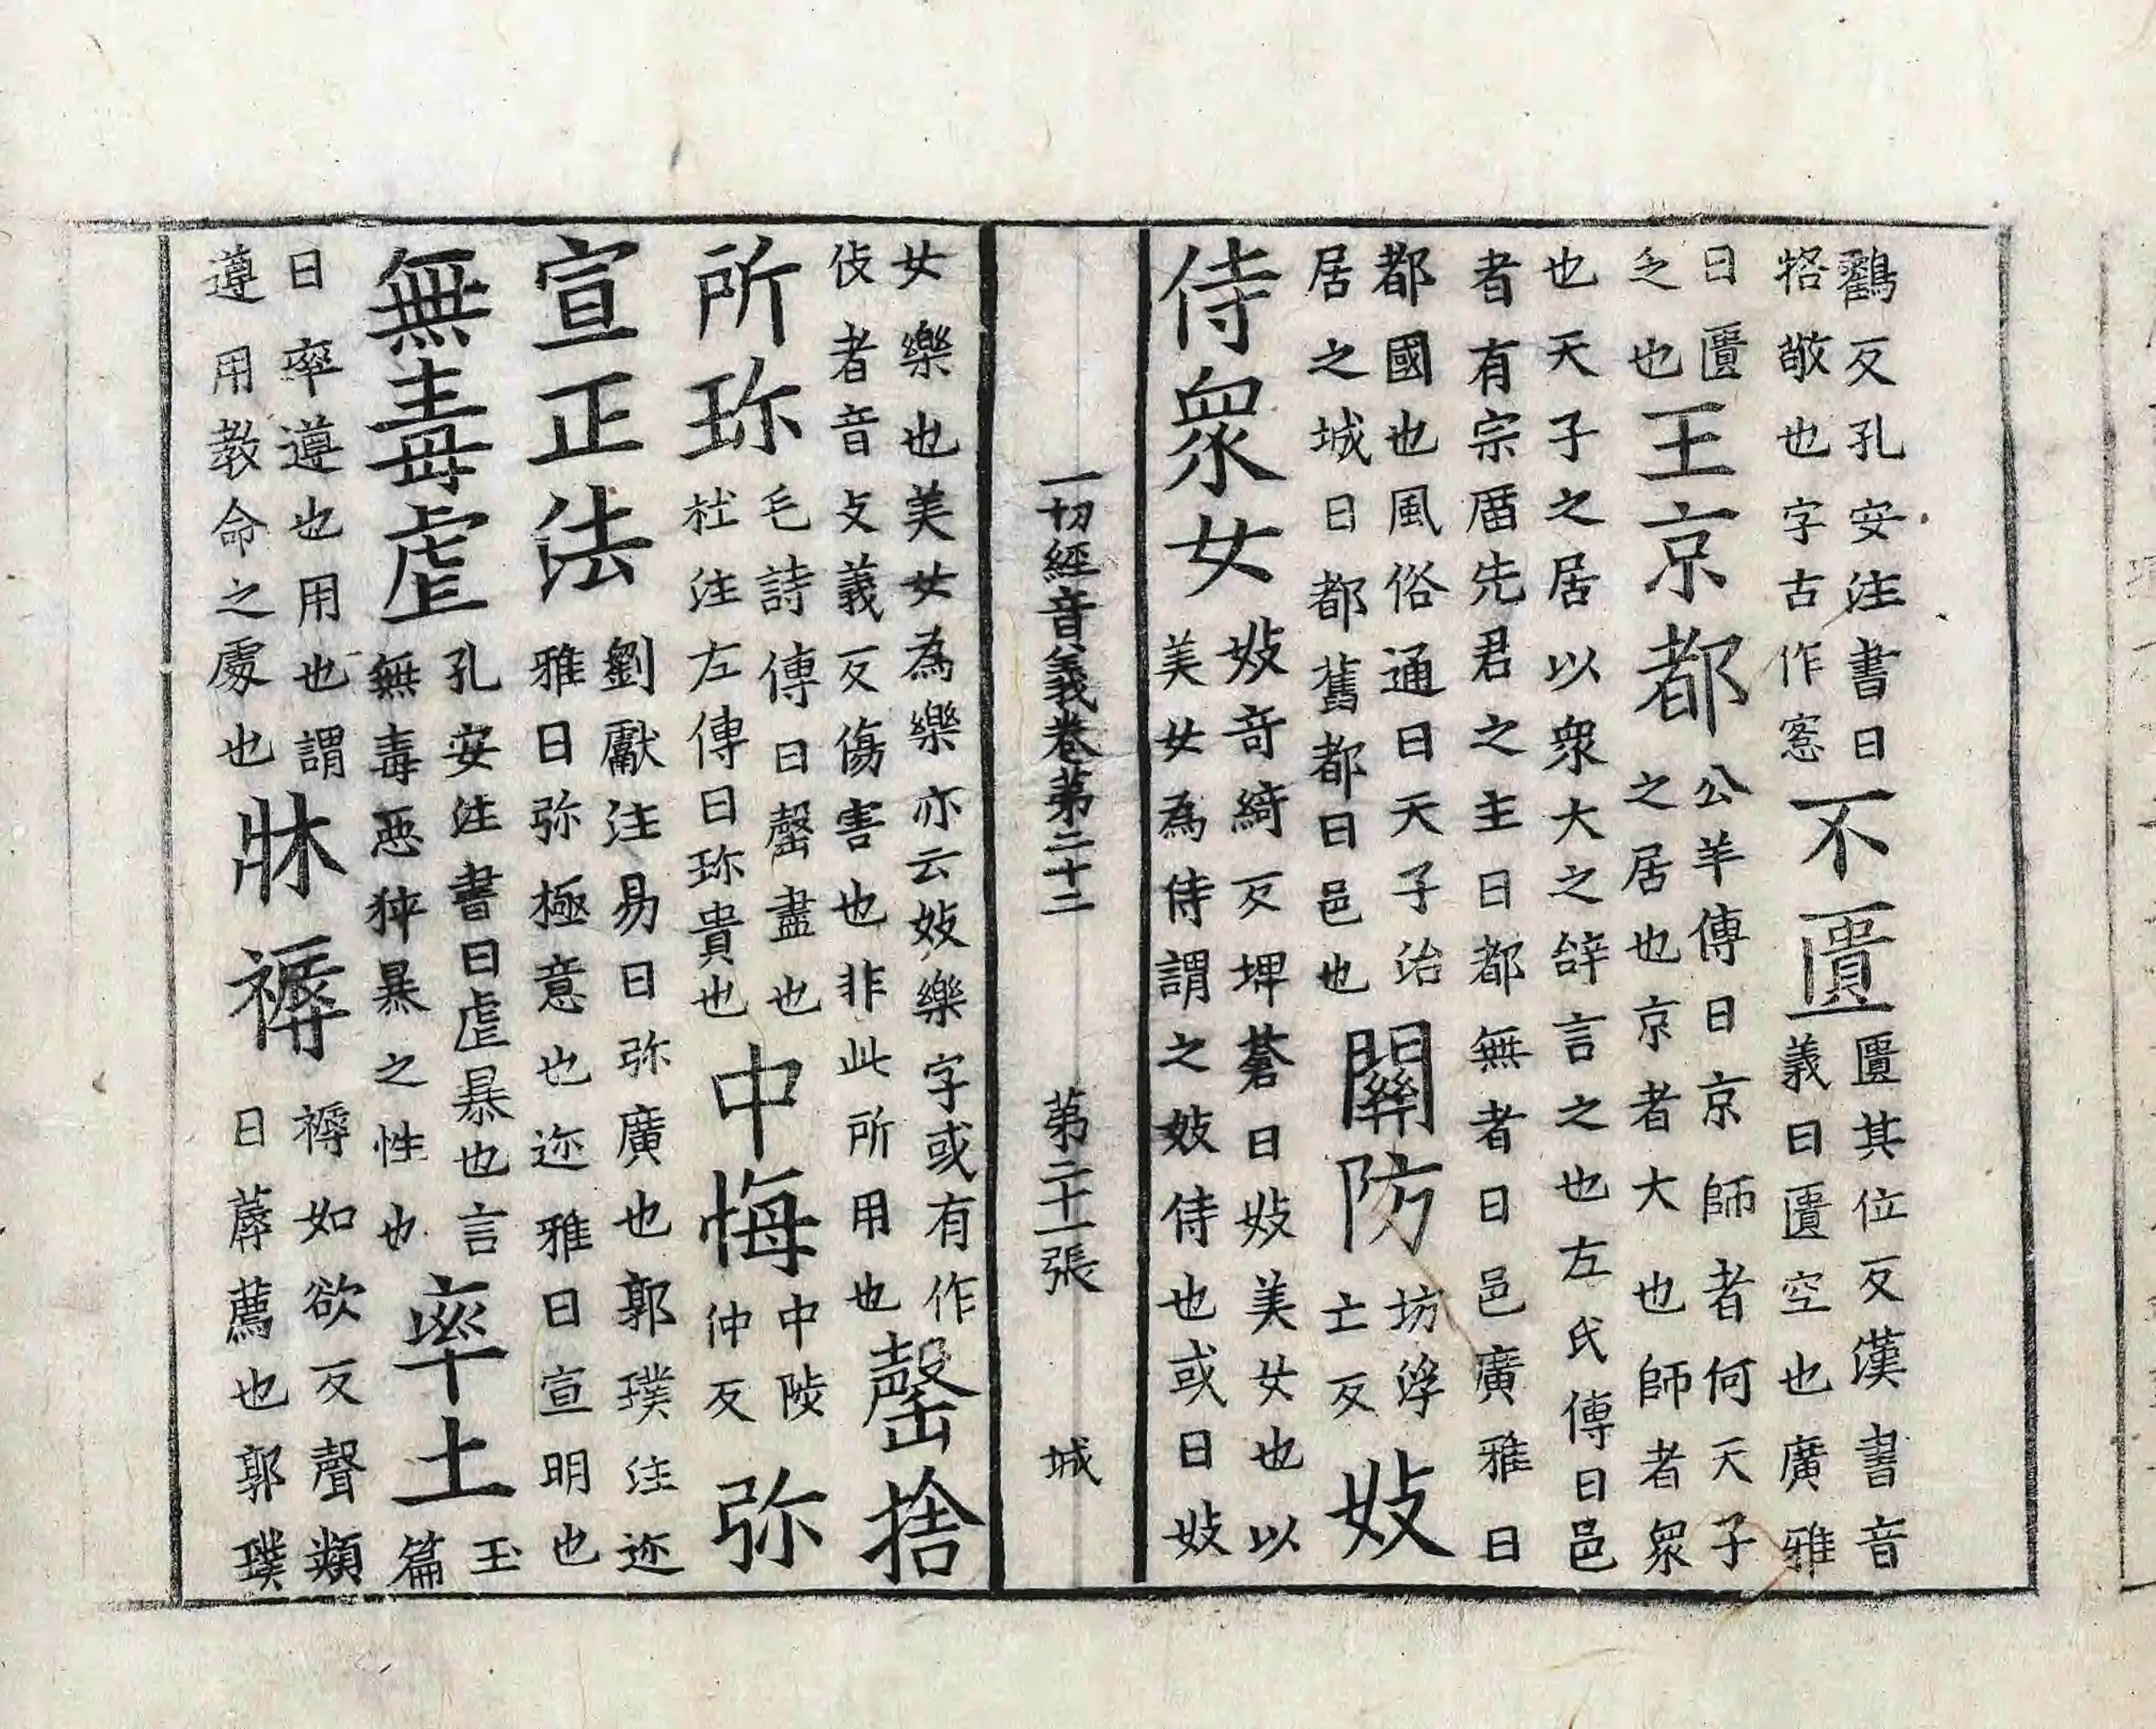 鸛反孔安注書曰恪敬也字古作愙不匱匱其位反漢書音義曰匱空也廣雅
曰匱乏也王京都公羊傳曰京師者何天子之居也京者大也師者衆
也天子之居以衆大之辝言之也左氏傳曰邑者有宗庿先君之主曰都無者曰邑廣雅曰
都國也風俗通曰天子治居之城曰都舊都曰邑也關防坊浮亡反妓
侍衆女妓竒綺反埤蒼曰妓美女也以美女為侍謂之妓侍也或曰妓
一切經音義卷第二十二 第二十一張 城
女樂也美女為樂亦云妓樂字或有作伎者音攴義反傷害也非此所用也罄捨
所珎毛詩傳曰罄盡也杜注左傳曰珎貴也中悔中陵仲反弥
宣正法劉瓛注易曰弥廣也郭璞注迩雅曰弥極意也迩雅曰宣明也
無毒虐孔安注書曰虐暴也言無毒惡狂暴之性也率土玉篇
曰率遵也用也謂遵用教命之處也牀褥褥如欲反聲類曰蓐薦也郭璞